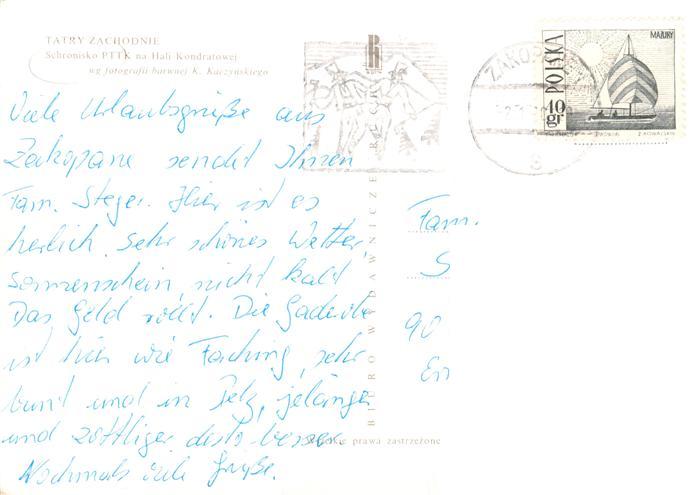 TATRY ZACHODNIE
Schronisko PTTK na Hali Kondratowej
wg fotografii barwnej K. Kaczyńskiego
Viele Urlaubsgrüße aus
Zakopane sendet Ihnen
Fam. Steger. Hier ist es
herlich. Sehr schönes Wetter,
Sonnenschein, nicht kalt
Das Geld rollt. Die Gaderobe
ist hier wie Fasching, sehr
bunt und in Pelz, je länger
und zottliger desto besser
Nochmals viele Grüße.
BIURO WYDAWNICZE RUCH
prawa zastrzeżone
Fam.
S
90
En
ZAKOP
8
POLSKA
MAZURY
40 gr